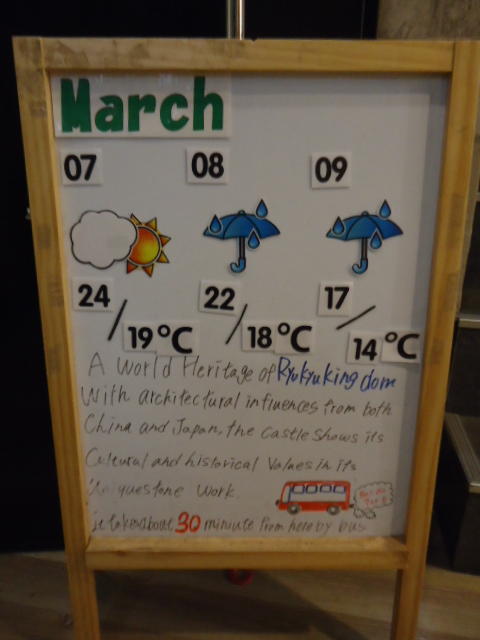 March
07 08 09
24 / 19°C 22 / 18°C 17 / 14°C
A World Heritage of Ryukyu kingdom
With architectural influences from both
China and Japan, the Castle shows its
Cultural and historical Values in its
stone work.
it takes about 30 miniute from here by bus